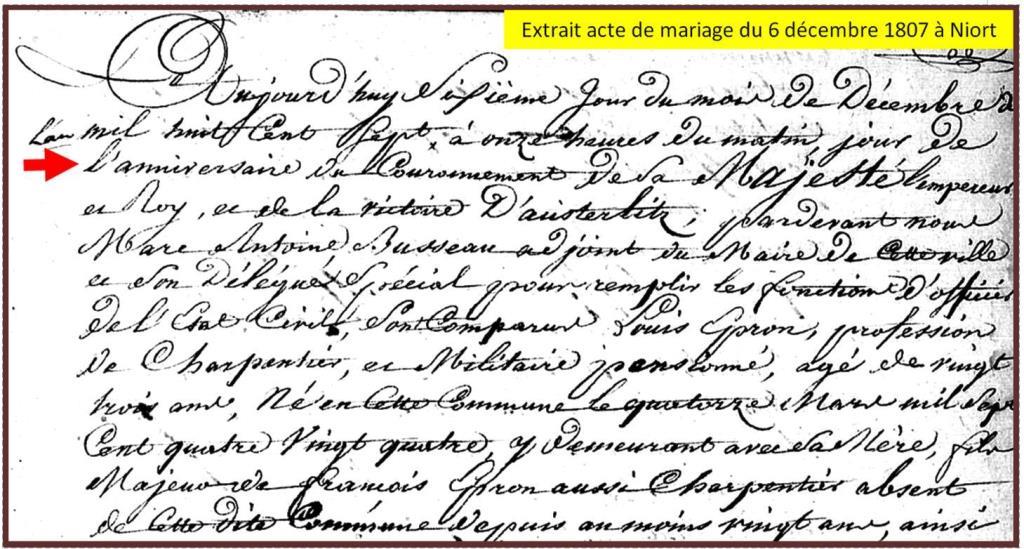 Extrait acte de mariage du 6 décembre 1807 à Niort
Aujourd'huy Sixième Jour du mois de Décembre de
L'an mil huit Cent Sept, à onze heures du matin, jour de
l'anniversaire du Couronnement de Sa Majesté l'empereur
et Roy, et de la victoire D'austerlitz, pardevant nous
Marc Antoine Busseau adjoint du Maire de Cette ville
et Son Délégué Spécial pour remplir les fonctions d'officier
de l'Etat Civil, Sont Comparus Louis Epron, profession
de Charpentier, et Militaire pensionné, agé de vingt
trois ans, Né en Cette Commune le quatorze Mars mil Sept
Cent quatre Vingt quatre, y demeurant avec Sa Mère, fils
Majeur de françois Epron aussi Charpentier absent
de Cette dite Commune depuis au moins vingt ans, ainsi